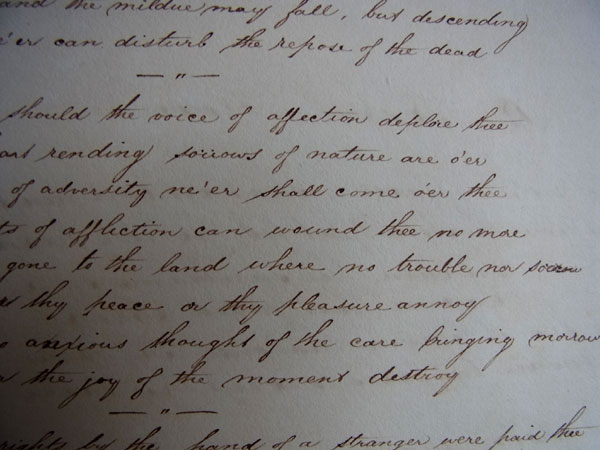 and the mildue may fall, but descending
e'er can disturb the repose of the dead
— " —
should the voice of affection deplore thee
art rending sorrows of nature are o'er
of adversity ne'er shall come o'er thee
ts of affliction can wound thee no more
gone to the land where no trouble nor
thy peace or thy pleasure annoy
anxious thought of the care bringing morrow
the joy of the moment destroy
— " —
rights by the hand of a stranger were paid thee